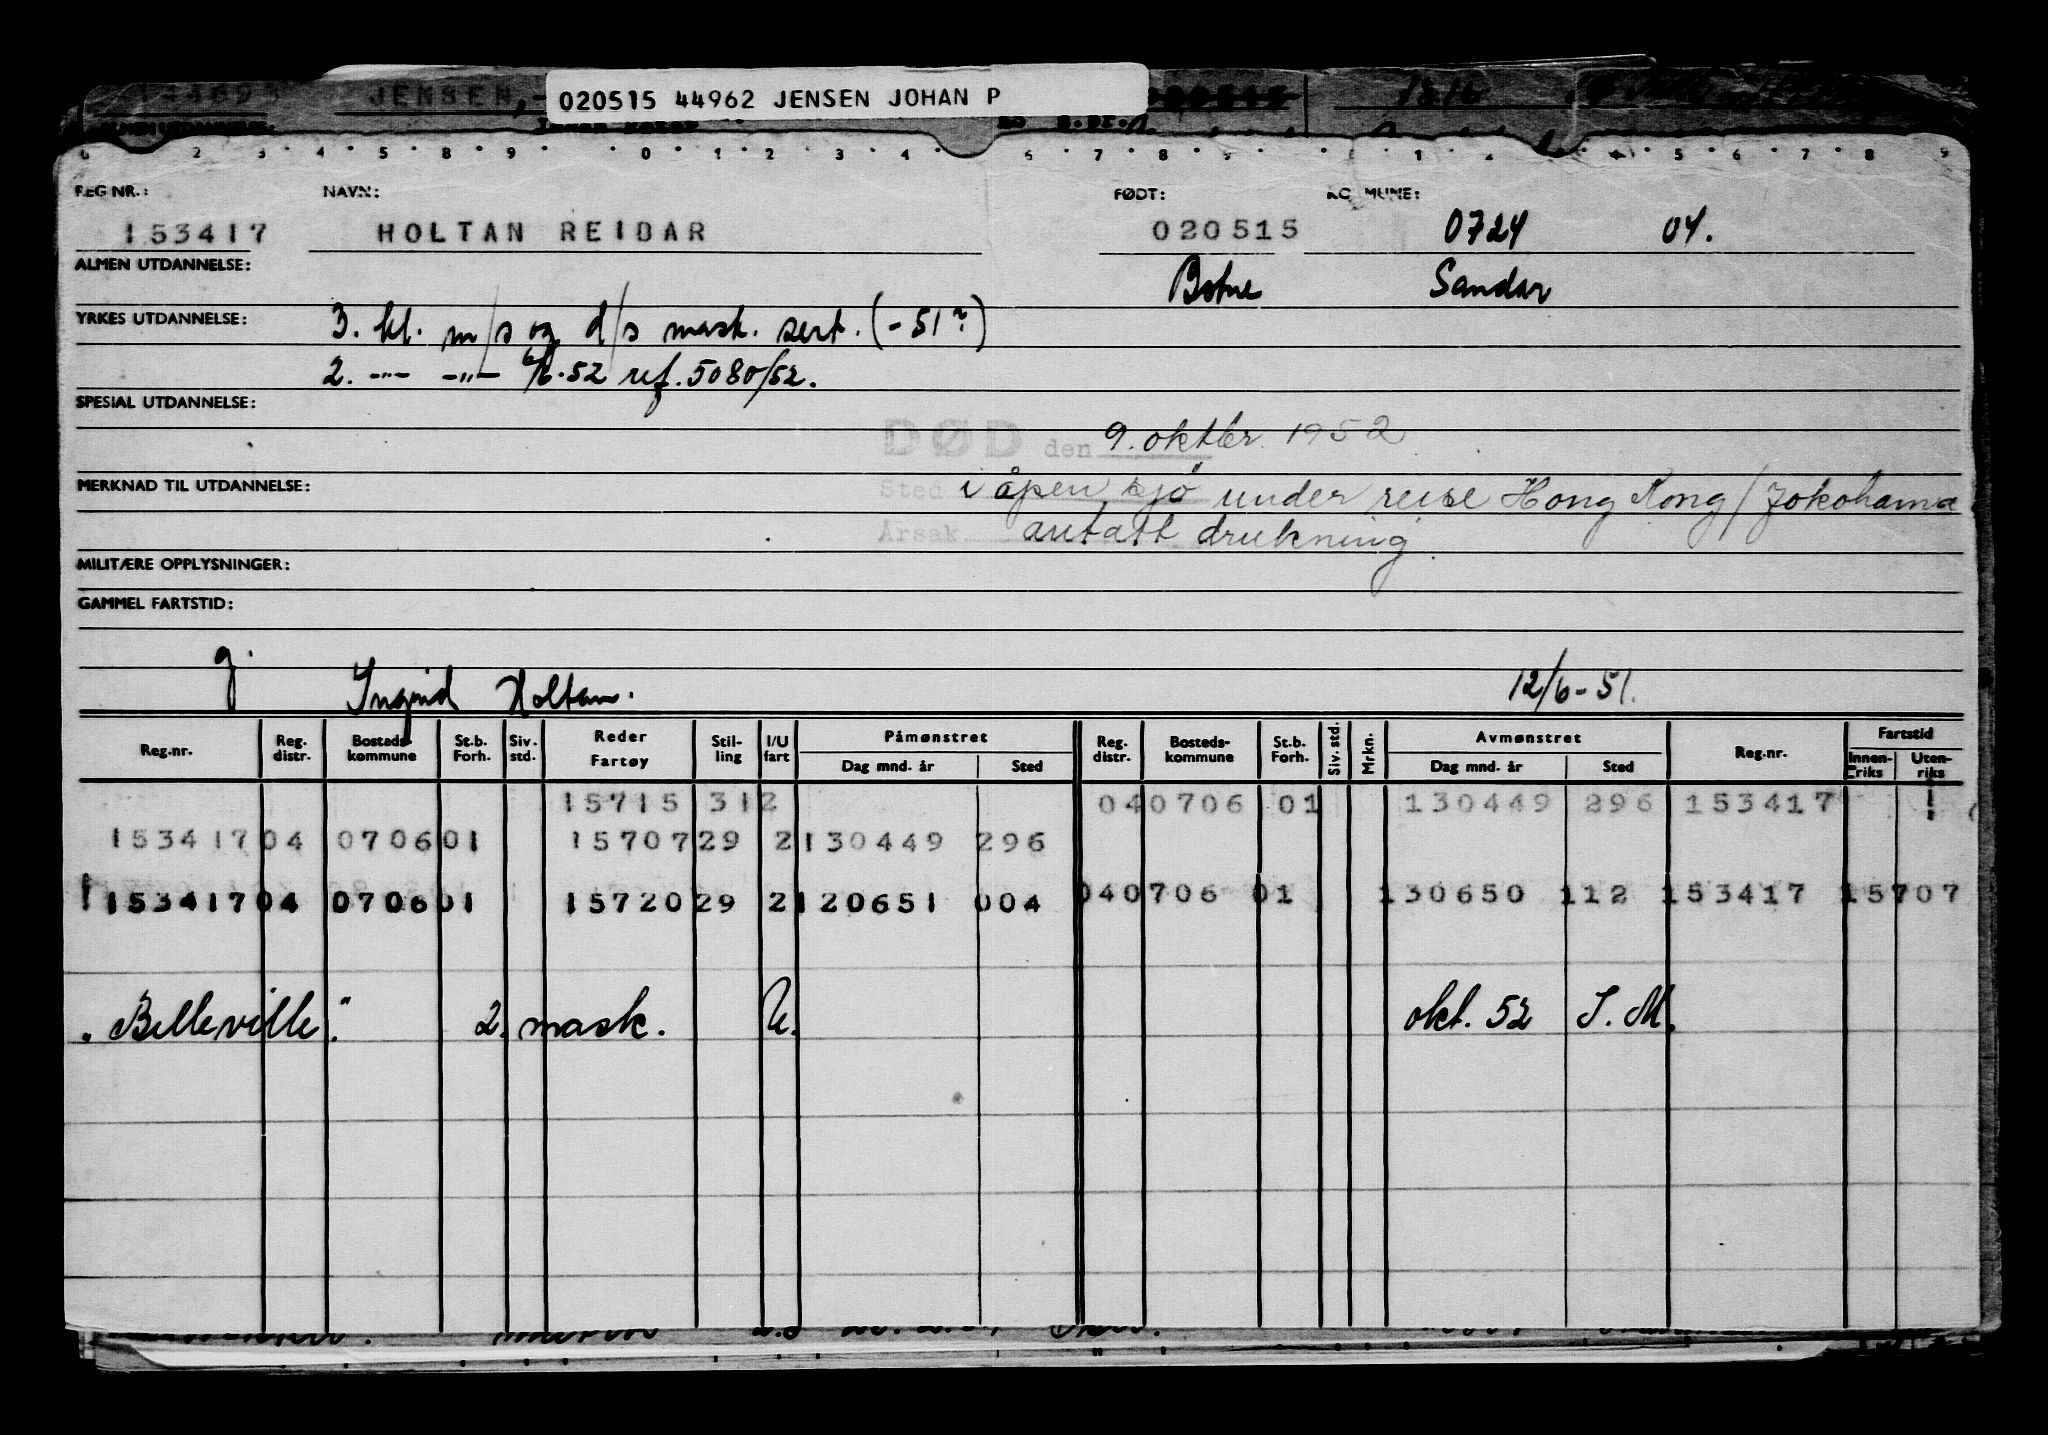 JENSEN,
020515 44962 JENSEN JOHAN P
REG NR.: NAVN: FØDT: KOMMUNE:
153417 HOLTAN REIDAR 020515 0724 04.
ALMEN UTDANNELSE: Botne Sandar
YRKES UTDANNELSE: 3. kl. m/s og d/s mask. sert. (-51?)
2. -"- -"- 6/6.52 ref. 5080/52.
SPESIAL UTDANNELSE:
DØD den 9. oktbr. 1952
MERKNAD TIL UTDANNELSE: Sted i åpen sjö under reise Hong Kong/Jokohama
Årsak antatt drukning.
MILITÆRE OPPLYSNINGER:
GAMMEL FARTSTID:
g. Ingrid Holtan. 12/6-51.
Reg.nr. Reg. distr. Bosteds-kommune St.b. Forh. Siv. std. Reder Fartøy Stil-ling I/U fart Påmønstret Dag mnd. år Sted Reg. distr. Bosteds-kommune St.b. Forh. Siv. std. Mrkn. Avmønstret Dag mnd. år Sted Reg.nr. Fartstid Innen-riks Uten-riks
15715 312 040706 01 130449 296 153417
153417 04 0706 01 15707 29 2 130449 296
153417 04 0706 01 15720 29 2 120651 004 040706 01 130650 112 153417 15707
"Belleville". 2. mask. U. okt. 52 S. M.